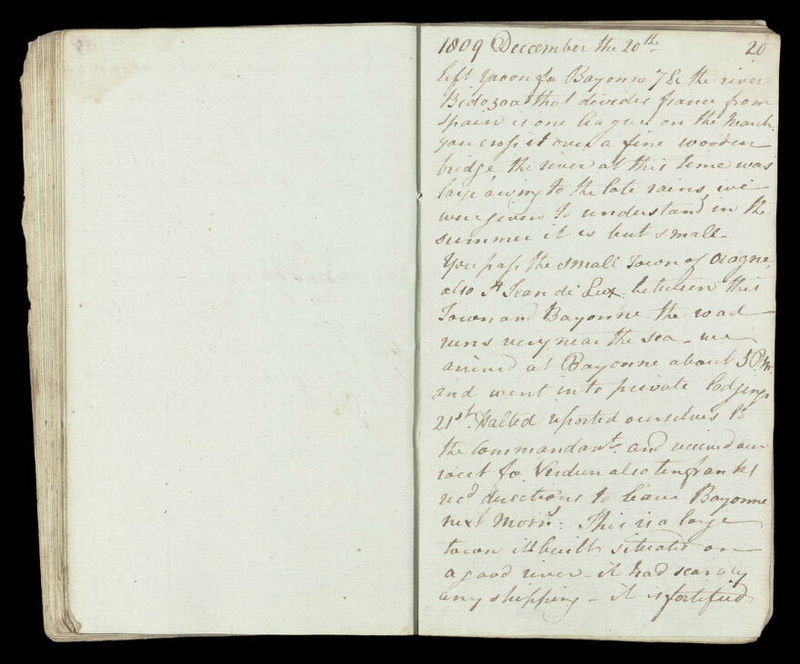 1809 December the 20th 20
left yroon for Bayonne 7 L: the river
Bidosoa that divides france from
Spain is one league on the March.
you cross it over a fine wooden
bridge the river at this time was
large owing to the late rains, we
were given to understand in the
summer it is but small.
You pass the small Town of Orogne
also St Jean di Lux. between this
Town and Bayonne the road
runs very near the sea - we
arrived at Bayonne about 5 P.M.
and went into private lodgings
21st. Halted reported ourselves to
the Commandant. and received our
rout for Verdun also ten franks
recd directions to leave Bayonne
next Morng: This is a large
town ill built situated on
a good river - it had scarcely
any shipping - it is fortified